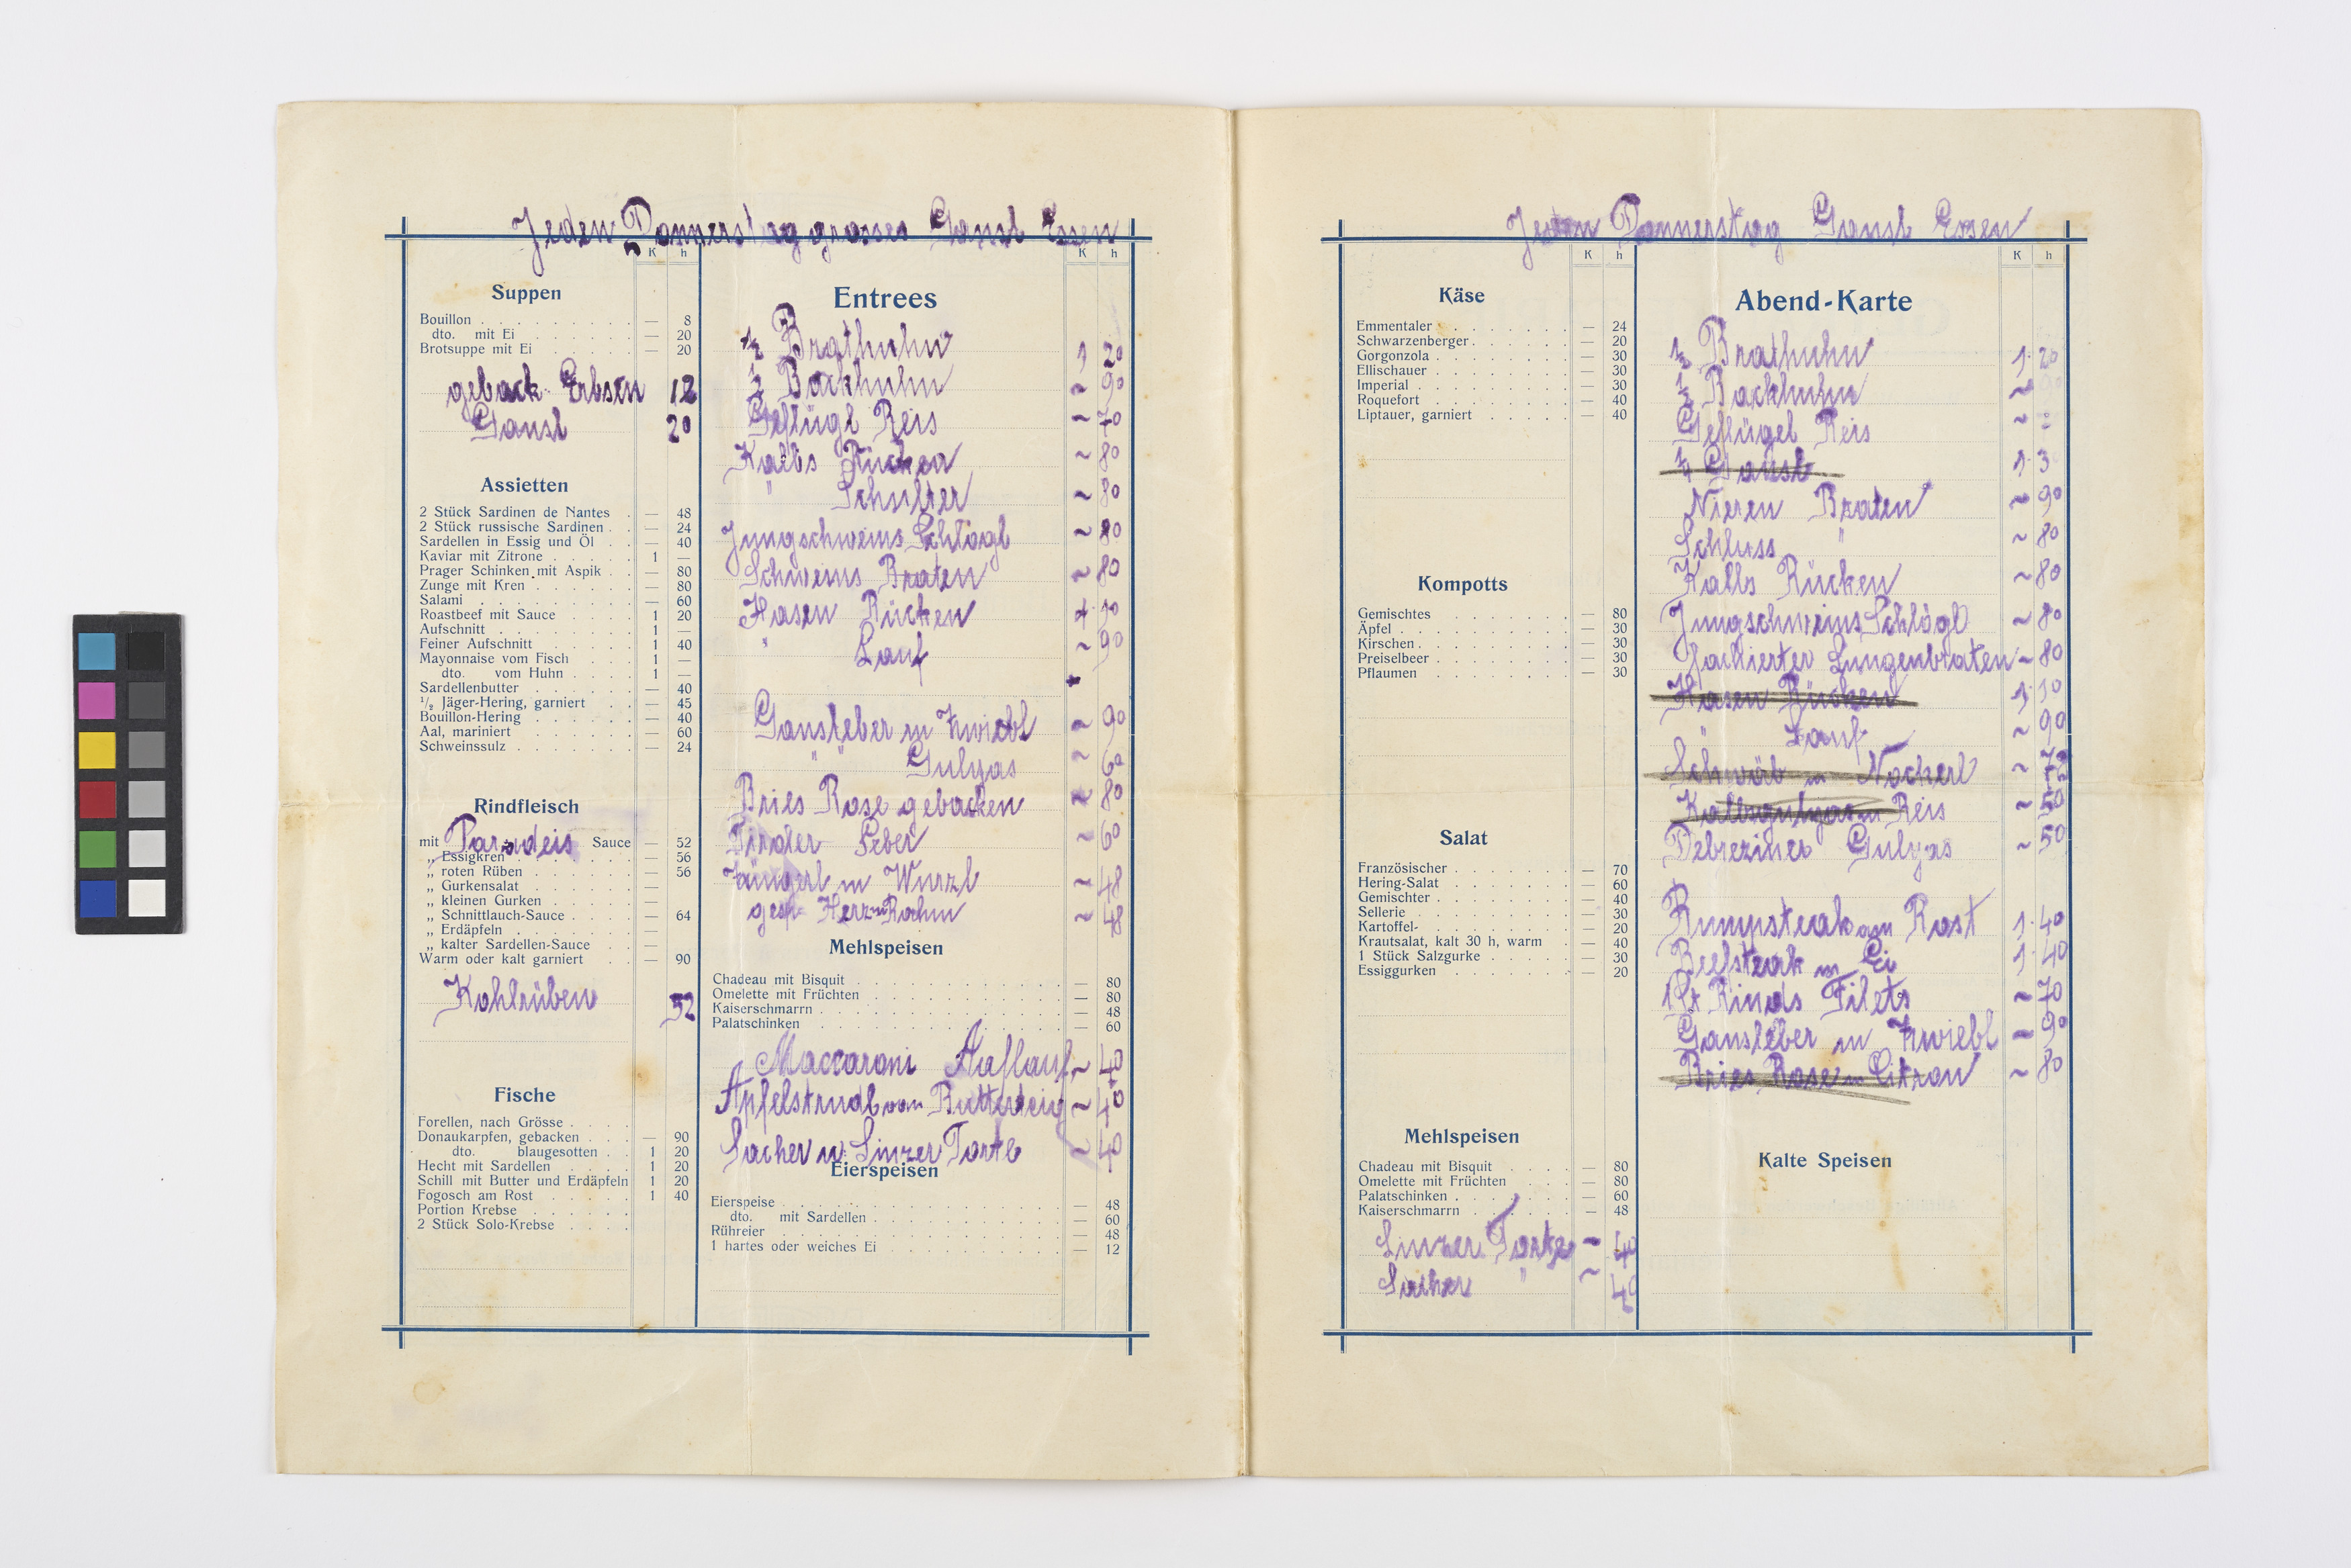 Jeden Donnerstag grosses Gansl Essen
K h
Suppen
Bouillon — 8
dto. mit Ei — 20
Brotsuppe mit Ei — 20
geback. Erbsen 12
Gansl 20
Assietten
2 Stück Sardinen de Nantes — 48
2 Stück russische Sardinen — 24
Sardellen in Essig und Öl — 40
Kaviar mit Zitrone 1 —
Prager Schinken mit Aspik — 80
Zunge mit Kren — 80
Salami — 60
Roastbeef mit Sauce 1 20
Aufschnitt 1 —
Feiner Aufschnitt 1 40
Mayonnaise vom Fisch 1 —
dto. vom Huhn 1 —
Sardellenbutter — 40
½ Jäger-Hering, garniert — 45
Bouillon-Hering — 40
Aal, mariniert — 60
Schweinssulz — 24
Rindfleisch
mit Paradeis Sauce — 52
„ Essigkren — 56
„ roten Rüben — 56
„ Gurkensalat —
„ kleinen Gurken —
„ Schnittlauch-Sauce — 64
„ Erdäpfeln —
„ kalter Sardellen-Sauce —
Warm oder kalt garniert — 90
Kohlrüben 52
Fische
Forellen, nach Grösse
Donaukarpfen, gebacken — 90
dto. blaugesotten 1 20
Hecht mit Sardellen 1 20
Schill mit Butter und Erdäpfeln 1 20
Fogosch am Rost 1 40
Portion Krebse
2 Stück Solo-Krebse
K h
Entrees
½ Brathuhn 1 20
½ Backhuhn ~ 90
Geflügl Reis ~ 70
Kalbs Rücken ~ 80
" Schulter ~ 80
Jungschweins Schlögl ~ 80
Schweins Braten ~ 80
Hasen Rücken 1 10
" Lauf ~ 90
Gansleber m Zwiebl ~ 90
" " Gulyas ~ 60
Bries Rose gebacken ~ 80
Rinder Leber ~ 60
Züngerl m Wurzl ~ 48
gesp. Herz m Rahm ~ 48
Mehlspeisen
Chadeau mit Bisquit — 80
Omelette mit Früchten — 80
Kaiserschmarrn — 48
Palatschinken — 60
Maccaroni Auflauf ~ 40
Apfelstrudl von Butterteig ~ 40
Sacher u. Linzer Torte ~ 40
Eierspeisen
Eierspeise — 48
dto. mit Sardellen — 60
Rühreier — 48
1 hartes oder weiches Ei — 12
Jeden Donnerstag Gansl Essen
K h
Käse
Emmentaler — 24
Schwarzenberger — 20
Gorgonzola — 30
Ellischauer — 30
Imperial — 30
Roquefort — 40
Liptauer, garniert — 40
Kompotts
Gemischtes — 80
Äpfel — 30
Kirschen — 30
Preiselbeer — 30
Pflaumen — 30
Salat
Französischer — 70
Hering-Salat — 60
Gemischter — 40
Sellerie — 30
Kartoffel- — 20
Krautsalat, kalt 30 h, warm — 40
1 Stück Salzgurke — 30
Essiggurken — 20
Mehlspeisen
Chadeau mit Bisquit — 80
Omelette mit Früchten — 80
Palatschinken — 60
Kaiserschmarrn — 48
Linzer Torte ~ 40
Sacher " ~ 40
K h
Abend-Karte
½ Brathuhn 1. 20
½ Backhuhn ~ 90
Geflügel Reis ~
¼ Gansl 1. 3
Nieren Braten ~ 90
Schluss " ~ 80
Kalbs Rücken ~ 80
Jungschweins Schlögl ~ 80
faschierter Lungenbraten ~ 80
Hasen Rücken 1. 10
" Lauf ~ 90
Schwäb m Nockerl ~ 70
Kalbsgulyas m Reis ~ 50
Debreziner Gulyas ~ 50
Rumpsteak am Rost 1. 40
Beefsteak m Ei 1. 40
1 St Rinds Filets ~ 70
Gansleber m Zwiebl ~ 90
Bries Rose m Citron ~ 80
Kalte Speisen